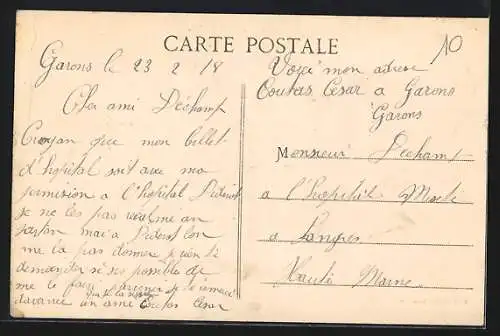 CARTE POSTALE
10
Garons le 23 2 18
Cher ami Dechamp
Croyan que mon billet
d'hopital soit avec ma
permission a l'hopital Diderot
je ne les pas
partan mai a Diderot lon
me la pas donner je vien te
demander si ses possible de
me le faire
davance un ami Coutas César
Voici mon adresse
Coutas César a Garons
Garons
Monsieur Dechamp
a l'hopital
a Langres
Haute Marne